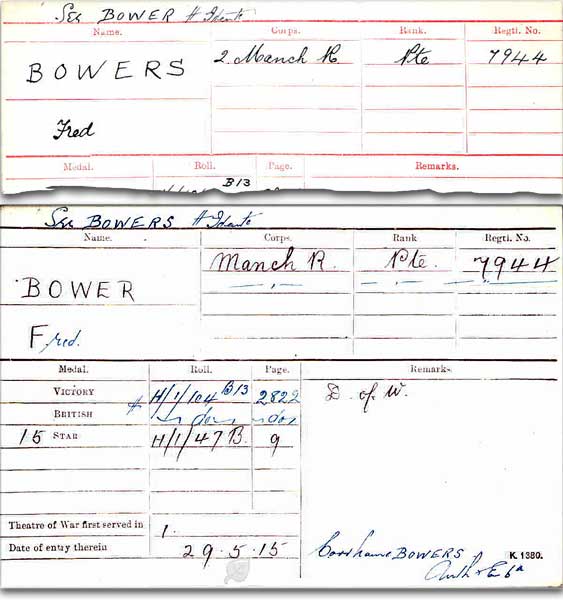 See BOWER
Name. Corps. Rank. Regtl. No.
BOWERS 2. Manch R. Pte 7944
Fred
Medal. Roll. Page. Remarks.
B13
See BOWERS
Name. Corps. Rank Regtl. No.
BOWER Manch R. Pte. 7944
Fred.
Medal. Roll. Page. Remarks.
VICTORY H/1/104 B13 2822 D. of. W.
BRITISH do do
15 STAR H/1/47 B. 9
Theatre of War first served in 1.
Date of entry therein 29.5.15
Corr name BOWERS K. 1380.
Auth